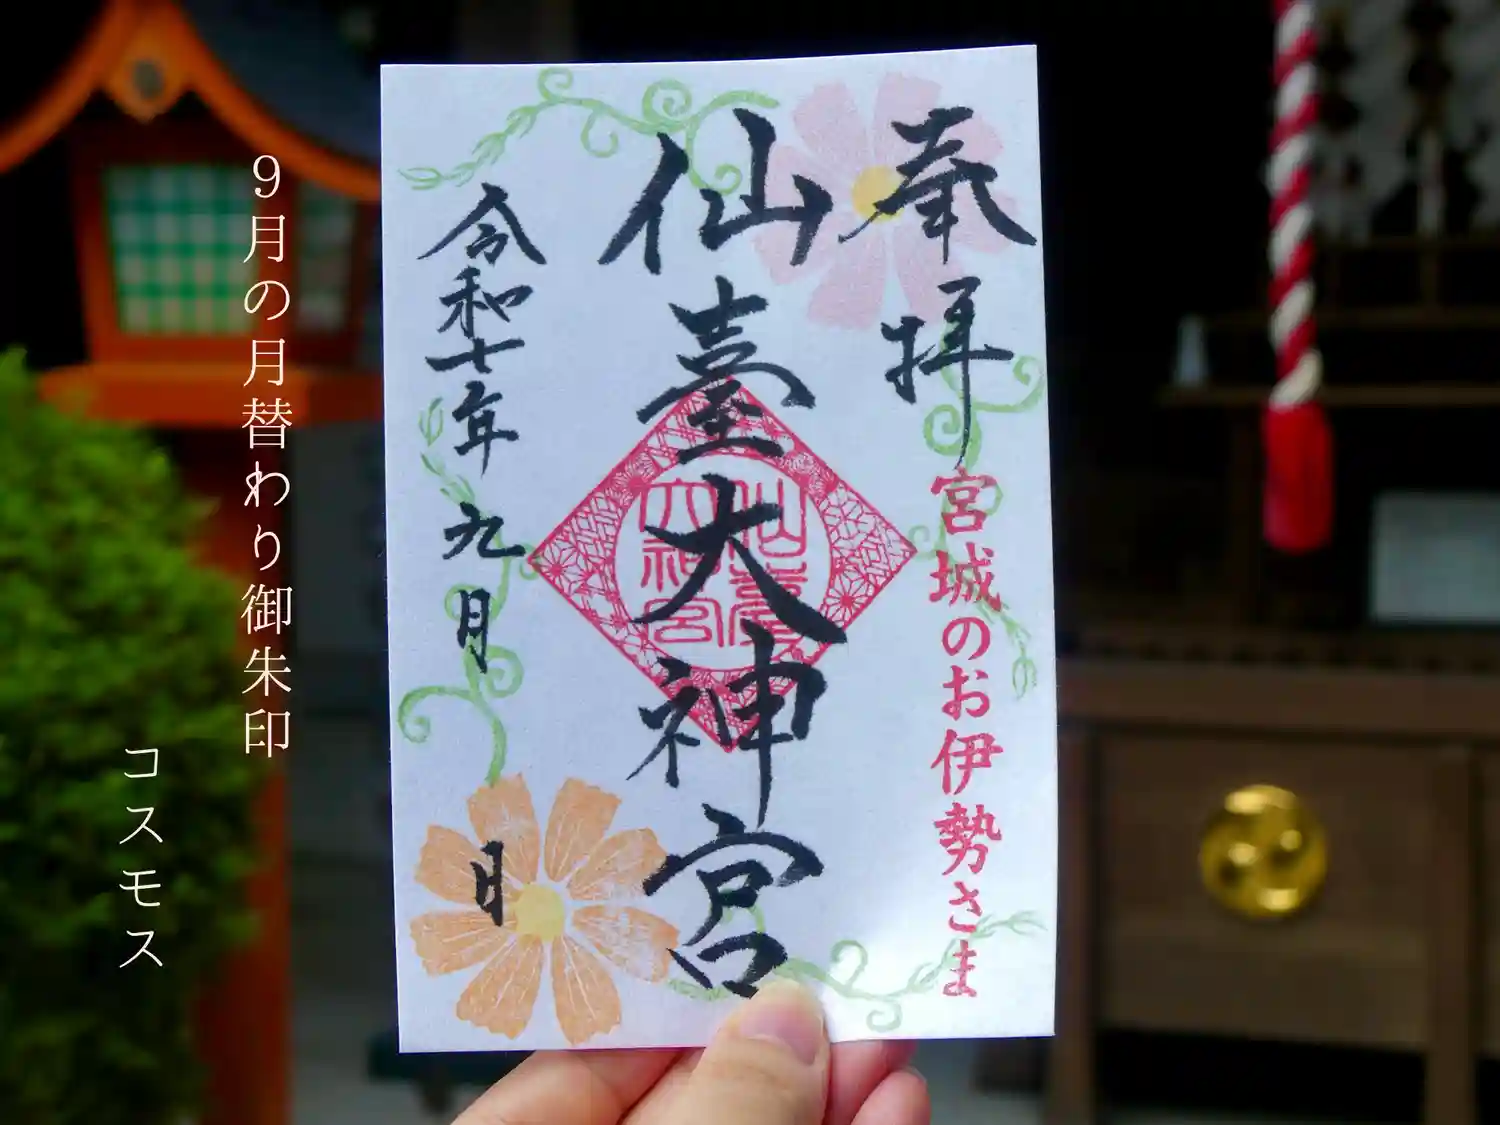 奉拝
宮城のお伊勢さま
仙臺大神宮
仙臺
大神宮
令和七年九月 日
9月の月替わり御朱印
コスモス